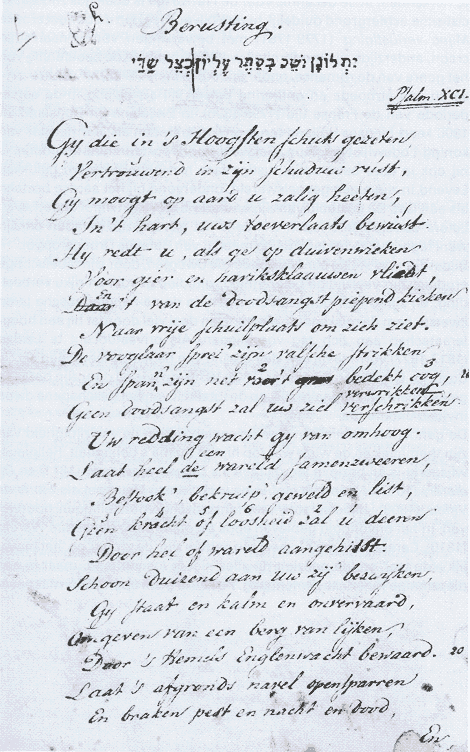 Berusting.
יֹשֵׁב בְּסֵתֶר עֶלְיוֹן בְּצֵל שַׁדַּי יִתְלוֹנָן
Psalm. XCI.
Gy die in 's Hoogsten schuts gezeten,
Vertrouwend in zijn schaduw rust,
Gy moogt op aard u zalig heeten,
In 't hart, uws toeverlaats bewust.
Hy redt u, als ge op duivenwieken
Voor gier en haviksklaauwen vliedt,
En 't van de doodsangst piepend kieken
Naar vrije schuilplaats om zich ziet.
De vooglaar sprei' zijn valsche strikken
En spann' zijn net 2 bedekt oog, 3 10
verwrikken
Geen doodsangst zal uw ziel verschrikken
Uw redding wacht gy van omhoog.
een
Laat heel de wareld samenzweeren,
Bestook', bekruip, geweld en list,
Geen kracht of loosheid zal u deeren
Door hel of wareld aangehitst.
Schoon duizend aan uw zij' bezwijken,
Gy staat en kalm en onvervaard,
Omgeven van een berg van lijken,
Door 's Hemels Englenwacht bewaard. 20
Laat 's afgronds navel opensparren
En braken pest en nacht en dood,
En